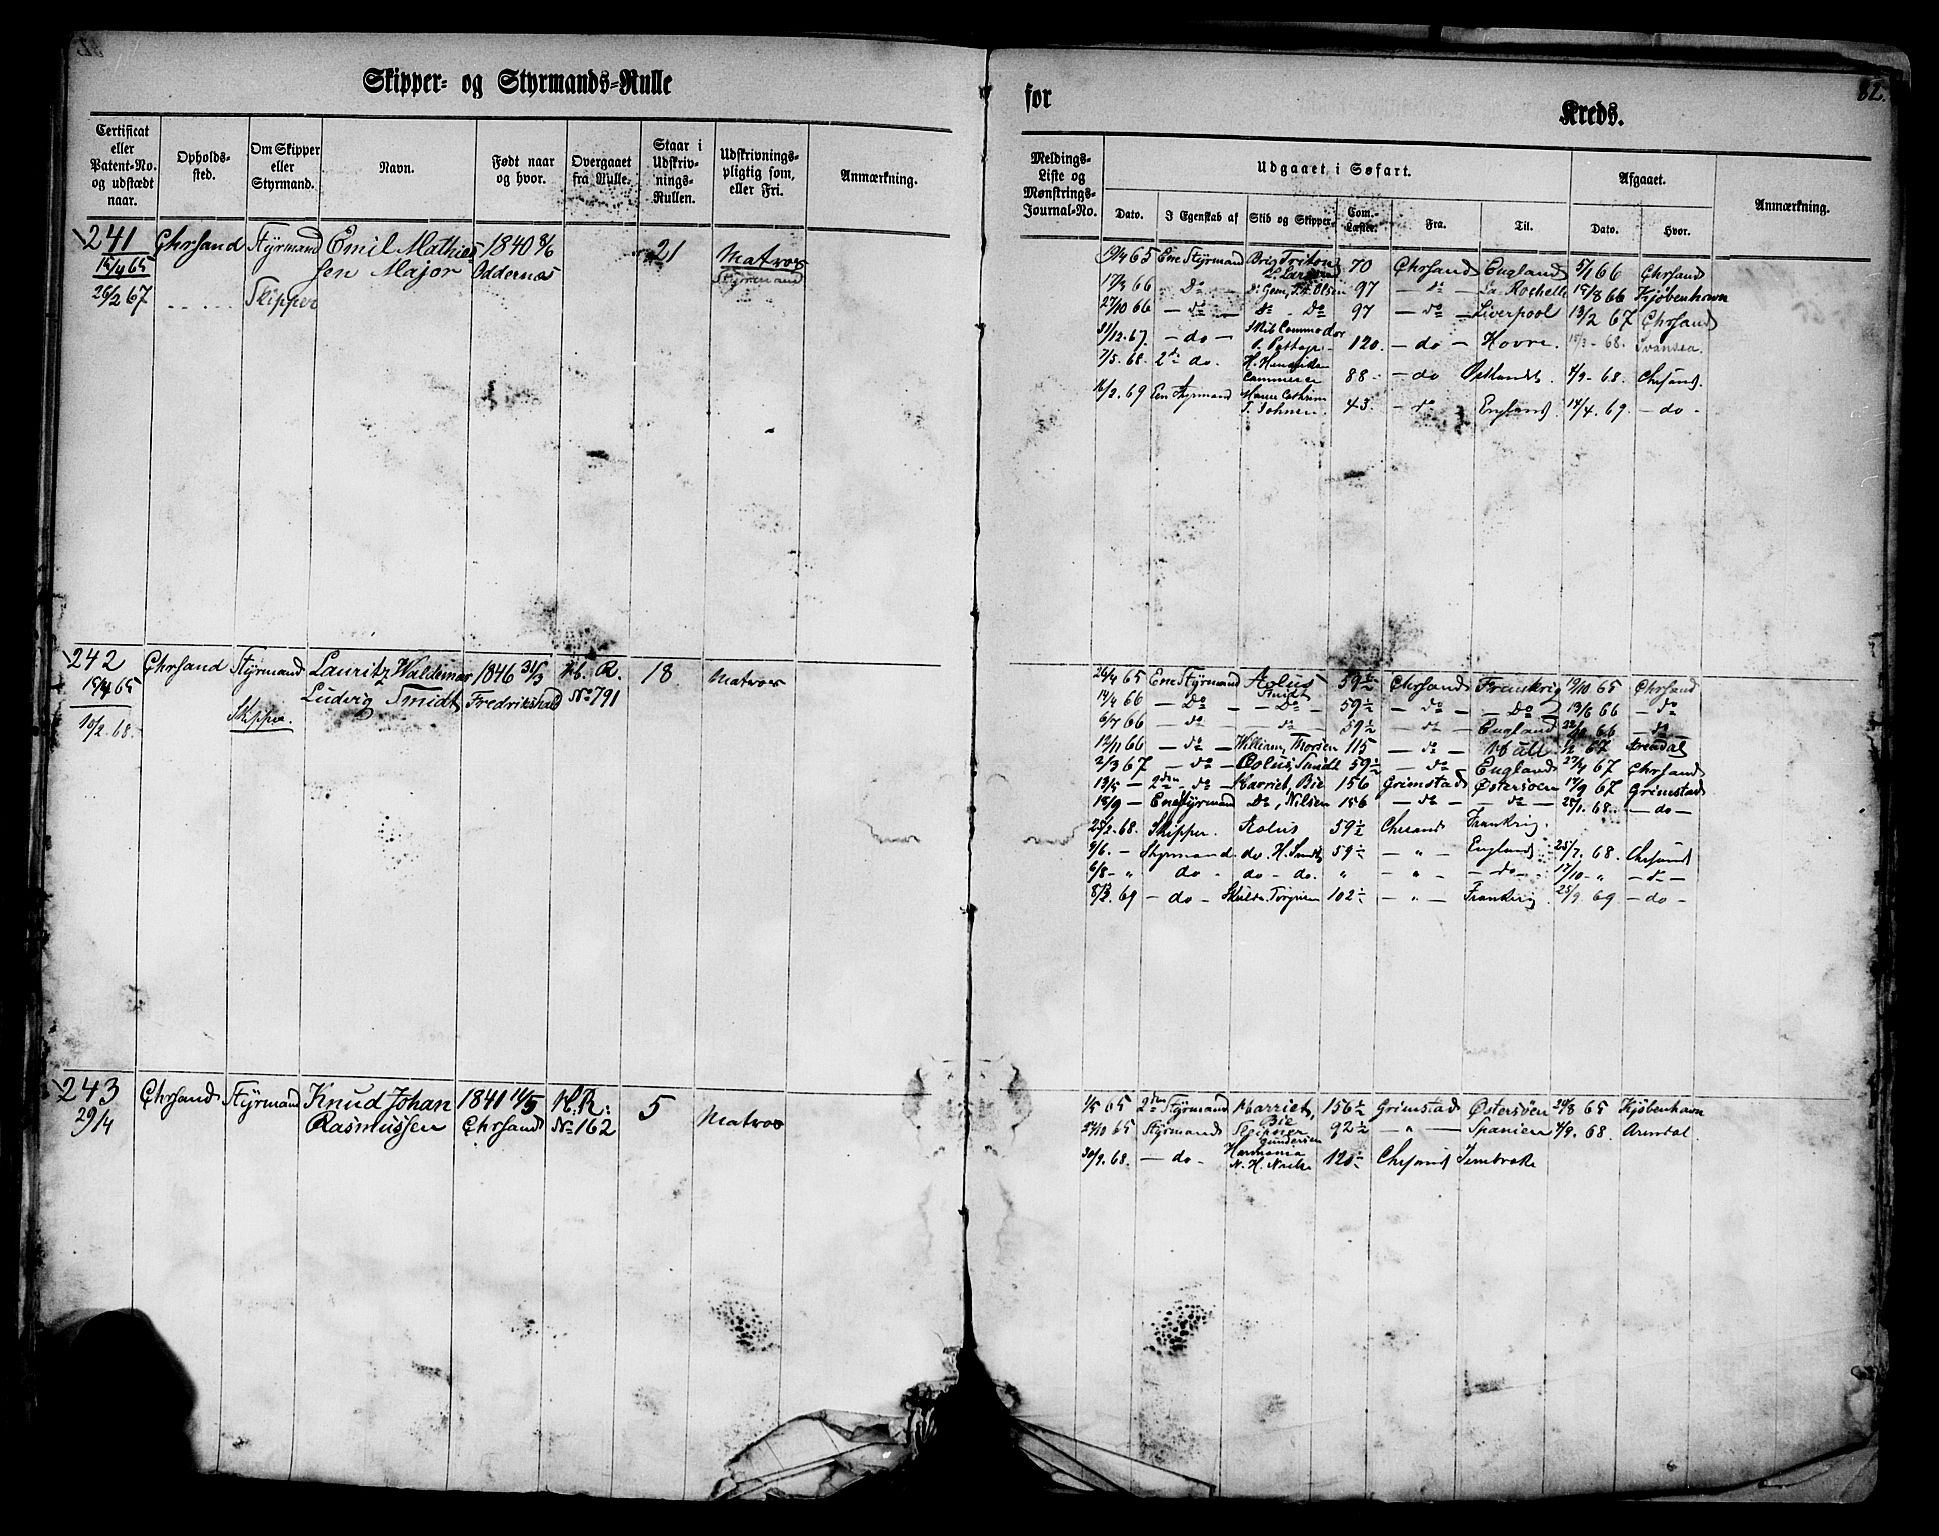 Skipper- og Styrmands-Rulle
for
Kreds.
82.
Certificat eller Patent-No. og udstædt naar.
Opholds-sted.
Om Skipper eller Styrmand.
Navn.
Født naar og hvor.
Overgaaet fra Rulle.
Staar i Udskriv-nings-Rullen.
Udskrivnings-pligtig som, eller Fri.
Anmærkning.
Meldings-Liste og Mønstrings-Journal-No.
Udgaaet i Søfart.
Afgaaet.
Anmærkning.
Dato. I Egenskab af Skib og Skipper Com.-Læster. Fra. Til. Dato. Hvor.
241 Chrsand Styrmand Emil Mathias 1840 21 Matros
15/4 65 sen Major Oddernæs Styrmand
26/2 67 Skipper
19/4 65 Ene Styrmand Brig Triton 70 Chrsand England 5/1 66 Chrsand
L. Larsen
17/3 66 - Do - Olsen 97 - do La Rochelle 15/8 66 Kjøbenhavn
27/10 66 - do - Do - Do 97 - do - Liverpool 13/2 67 Chrsand
31/12 67. - do - Skib Commodor
120. - do - Havre. 15/3 - 68. Svansea.
7/5. 68. 2den do. H. Henriksen
Commerce 88 - - do Østlandet. 4/9 - 68. Chrsand.
16/2. 69 Een Styrmand Hanne Cathrine
T. Johnsen. 43. - do - England 14/4. 69. - do -
242 Chrsand Styrmand Lauritz Waldemar 1846 31/3 Hb. R. 18 Matros
15/4 65 Ludvig Smidt Fredrikshald No 791
10/2. 68. Skipper.
26/4 65 Ene Styrmand Aolus 59 1/2 Chrsand Frankrig 19/10 65 Chrsand
Smidt
14/4 66 - Do - - Do - 59 1/2 - do - - Do 13/6 66 - do
6/7 66 - do - - do 59 1/2 - do - England 66 - do -
12/11 66 - do - William, Thorsen 115 - do - Hall 67 Arendal
2/3 67 - do - Æolus, Smidt 59 1/2 - do England 27/4 67 Chrsand
13/5 - 2den - do - Harriet, Bie 156 Grimstad Østersøen 17/9 67 Grimstad
18/9 - Ene Styrmand Do, Nilsen 156 - do - - do - 25/1. 68. - do -
25/2. 68. Skipper. Aolus 59 1/2 Chrsand Frankrig.
9/6. - Styrmand. do. H. Smidt 59 1/2 - " - England 25/7. 68. Chrsand
6/8 - " do - do - do. " - " - - do - 17/10 - " - do -
69 - do - 102 1/2 - " - Frankrig. 25/9. 69 - do -
243 Chrsand Styrmand Knud Johan 1841 14/5 H. R. 5 Matros
29/4 Rasmussen Chrsand No 162
1/5 65 2den Styrmand Harriet, 156 1/2 Grimstad Østersøen 24/8 65 Kjøbenhavn
Bie
27/10 65 Styrmand 92 1/2 - " - Spanien 4/9. 68. Arendal.
Gundersen
30/9. 68. - do - Harmonia
N. H. 120 1/2 Chrsand